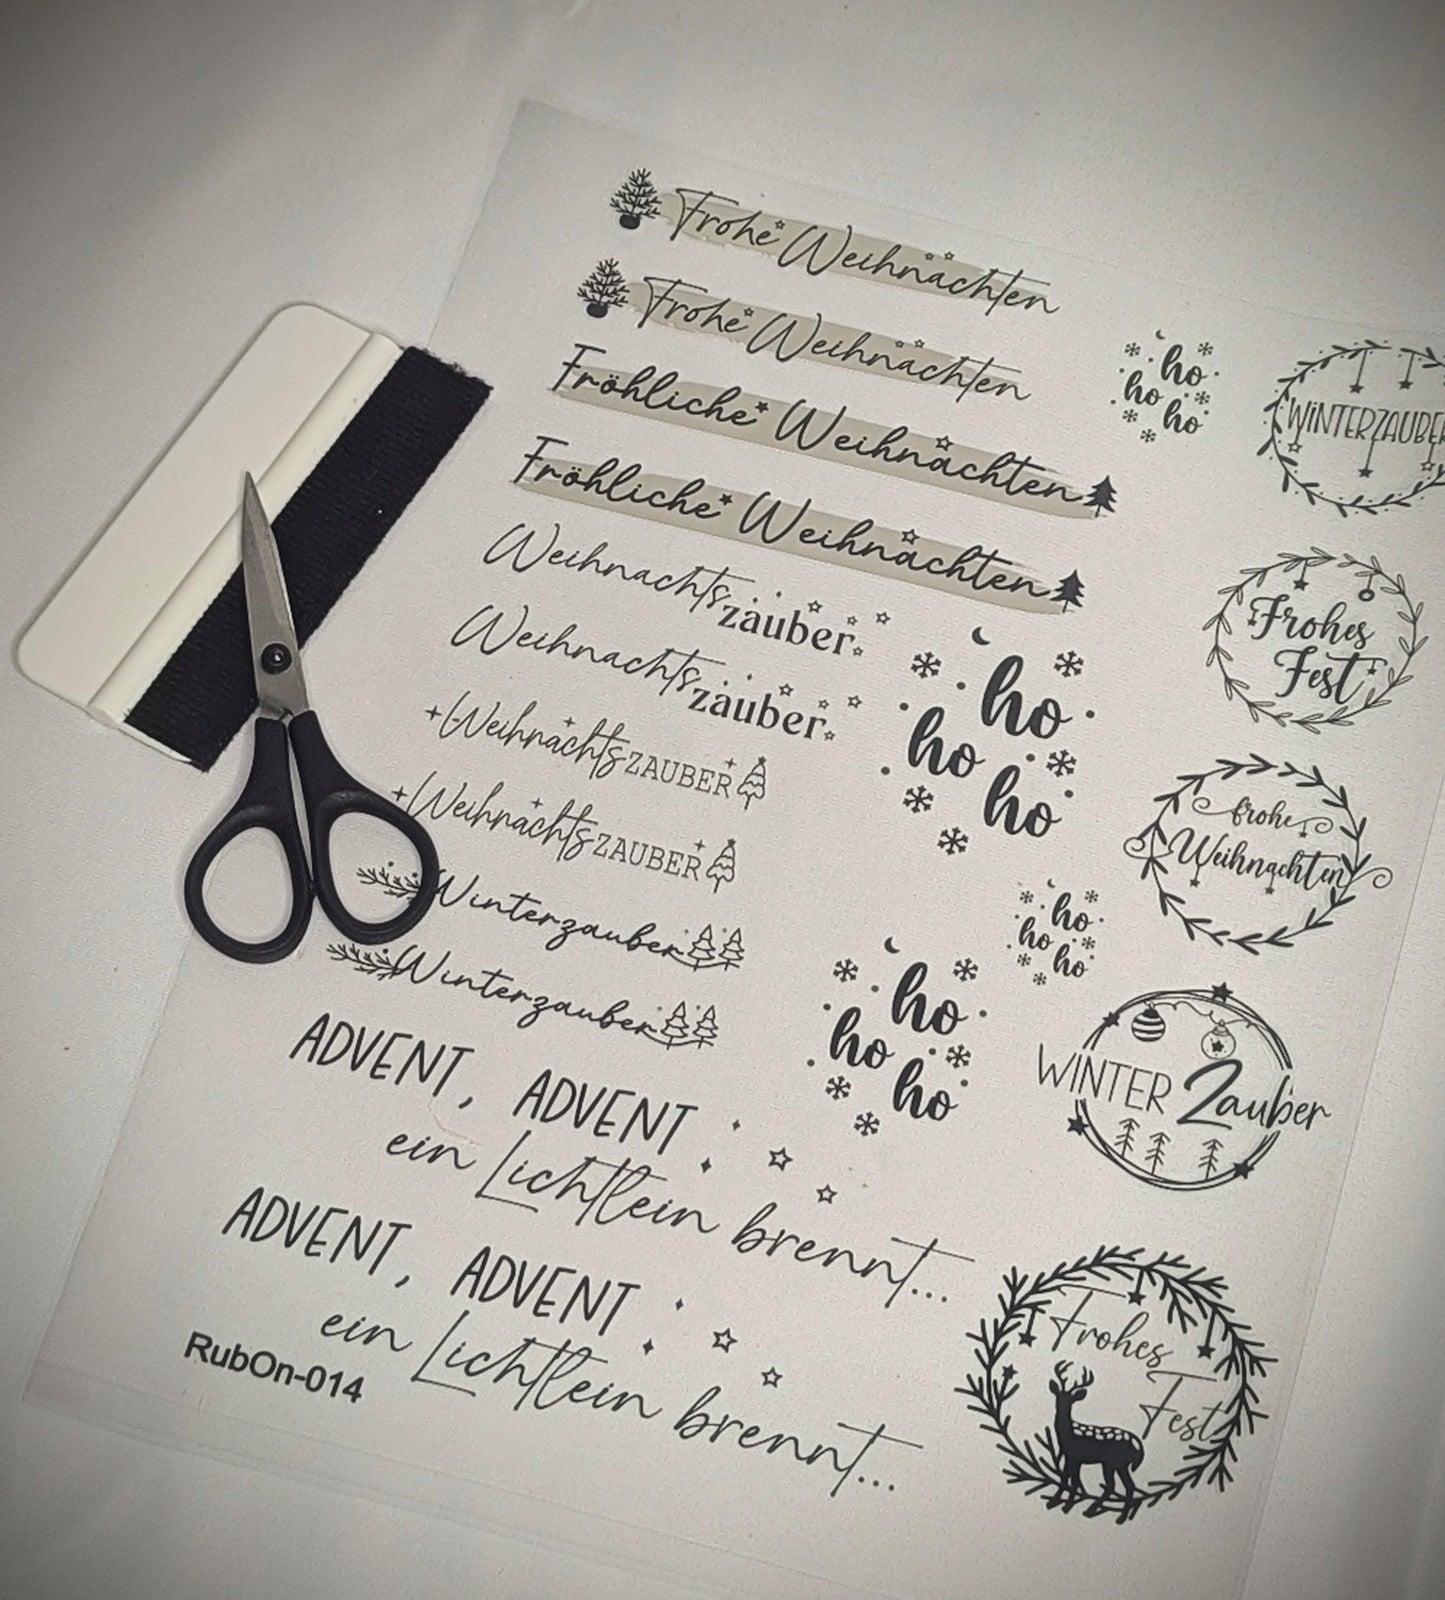 Frohe Weihnachten
Frohe Weihnachten
Fröhliche Weihnachten
Fröhliche Weihnachten
Weihnachtszauber
Weihnachtszauber
WeihnachtsZAUBER
WeihnachtsZAUBER
Winterzauber
Winterzauber
ADVENT, ADVENT
ein Lichtlein brennt...
ADVENT, ADVENT
ein Lichtlein brennt...
RubOn-014
ho
ho
ho
ho
ho
ho
ho
ho
ho
ho
ho
ho
WINTERZAUBER
Frohes
Fest
frohe
Weihnachten
WINTER Zauber
Frohes
Fest